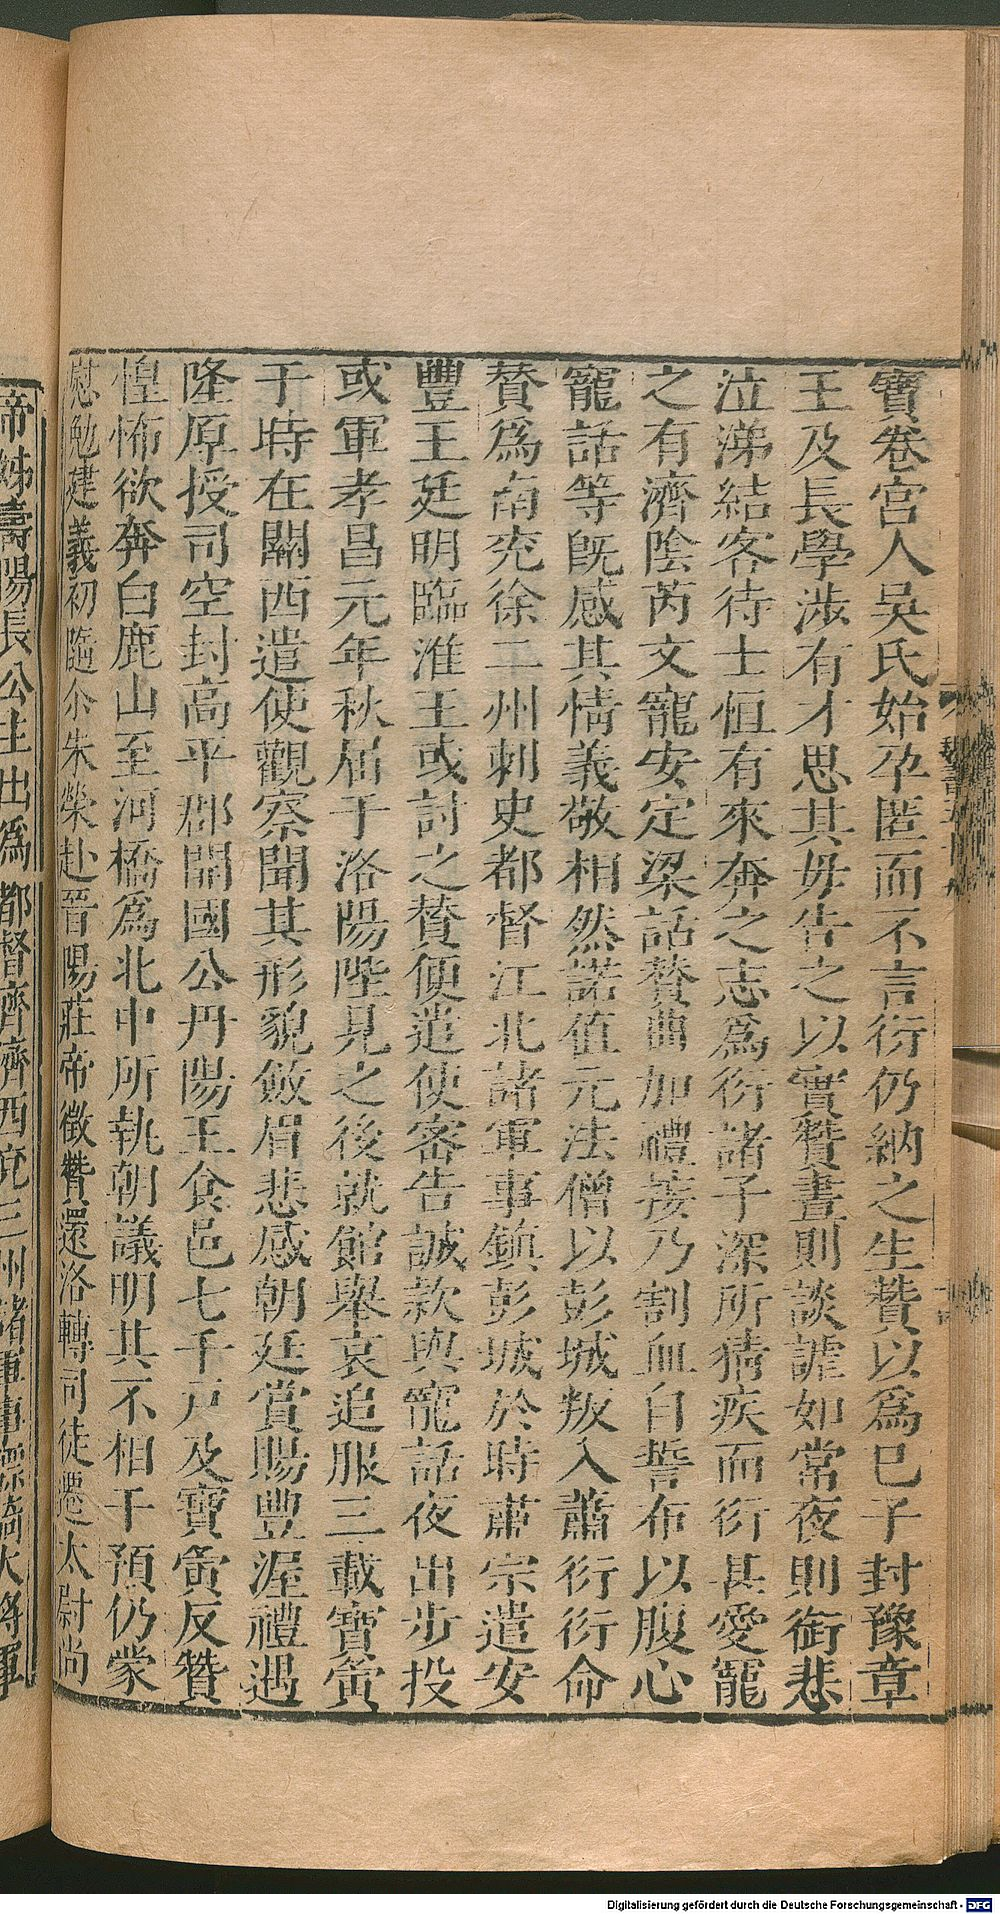 寶卷宮人吳氏始孕匿而不言衍仍納之生贊以爲巳子封豫章
王及長學涉有才思其母告之以實贊晝則談謔如常夜則銜悲
泣涕結客待士恒有來奔之志爲衍諸子深所猜疾而衍甚愛寵
之有濟陰芮文寵安定梁話贊曲加禮接乃割血自誓布以腹心
寵話等旣感其情義敬相然諾值元法僧以彭城叛入蕭衍衍命
贊爲南兖徐二州刺史都督江北諸軍事鎮彭城於時肅宗遣安
豐王廷明臨淮王或討之贊便遣使密告誠款與寵話夜出步投
或軍孝昌元年秋屆于洛陽陛見之後就館舉哀追服三載寶夤
于時在關西遣使觀察聞其形貌斂眉悲感朝廷賞賜豐渥禮遇
隆原授司空封高平郡開國公丹陽王食邑七千戸及寶夤反贊
惶怖欲奔白鹿山至河橋爲北中所執朝議明其不相干預仍蒙
慰勉建義初隨尒朱榮赴晉陽莊帝徵贊還洛轉司徒遷太尉尚
帝姊壽陽長公主出爲都督齊濟西兖三州諸軍事驃騎大將軍
Digitalisierung gefördert durch die Deutsche Forschungsgemeinschaft - DFG